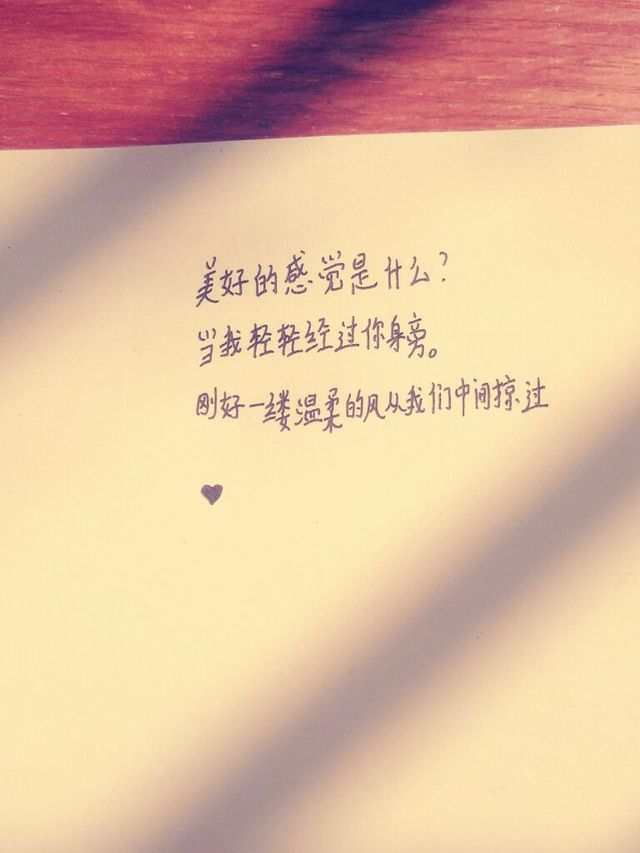 美好的感觉是什么?
当我轻轻经过你身旁。
刚好一缕温柔的风从我们中间掠过